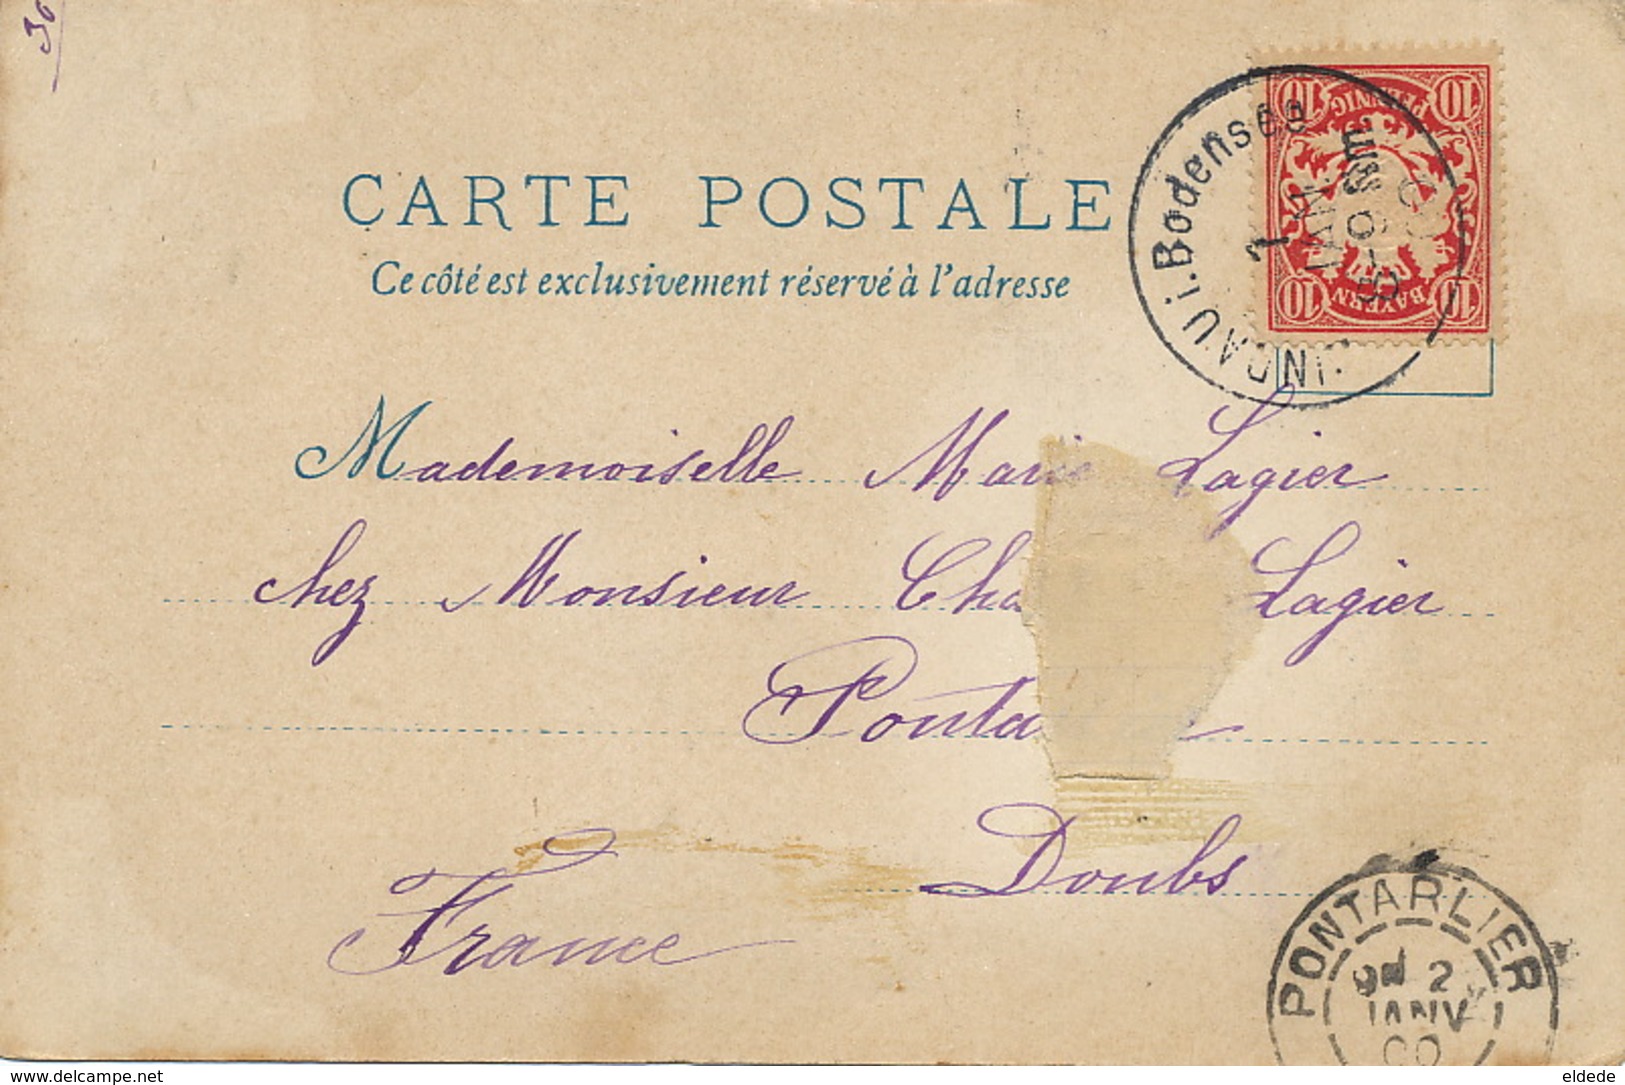 36
CARTE POSTALE
Ce côté est exclusivement réservé à l'adresse
10 PFENNIG 10
10 BAYERN 10
i. Bodensee
1
JAN
Mademoiselle Marie Lagier
chez Monsieur Cha Lagier
Ponta
Doubs
France
PONTARLIER
2
JANV
00
www.delcampe.net
eldede